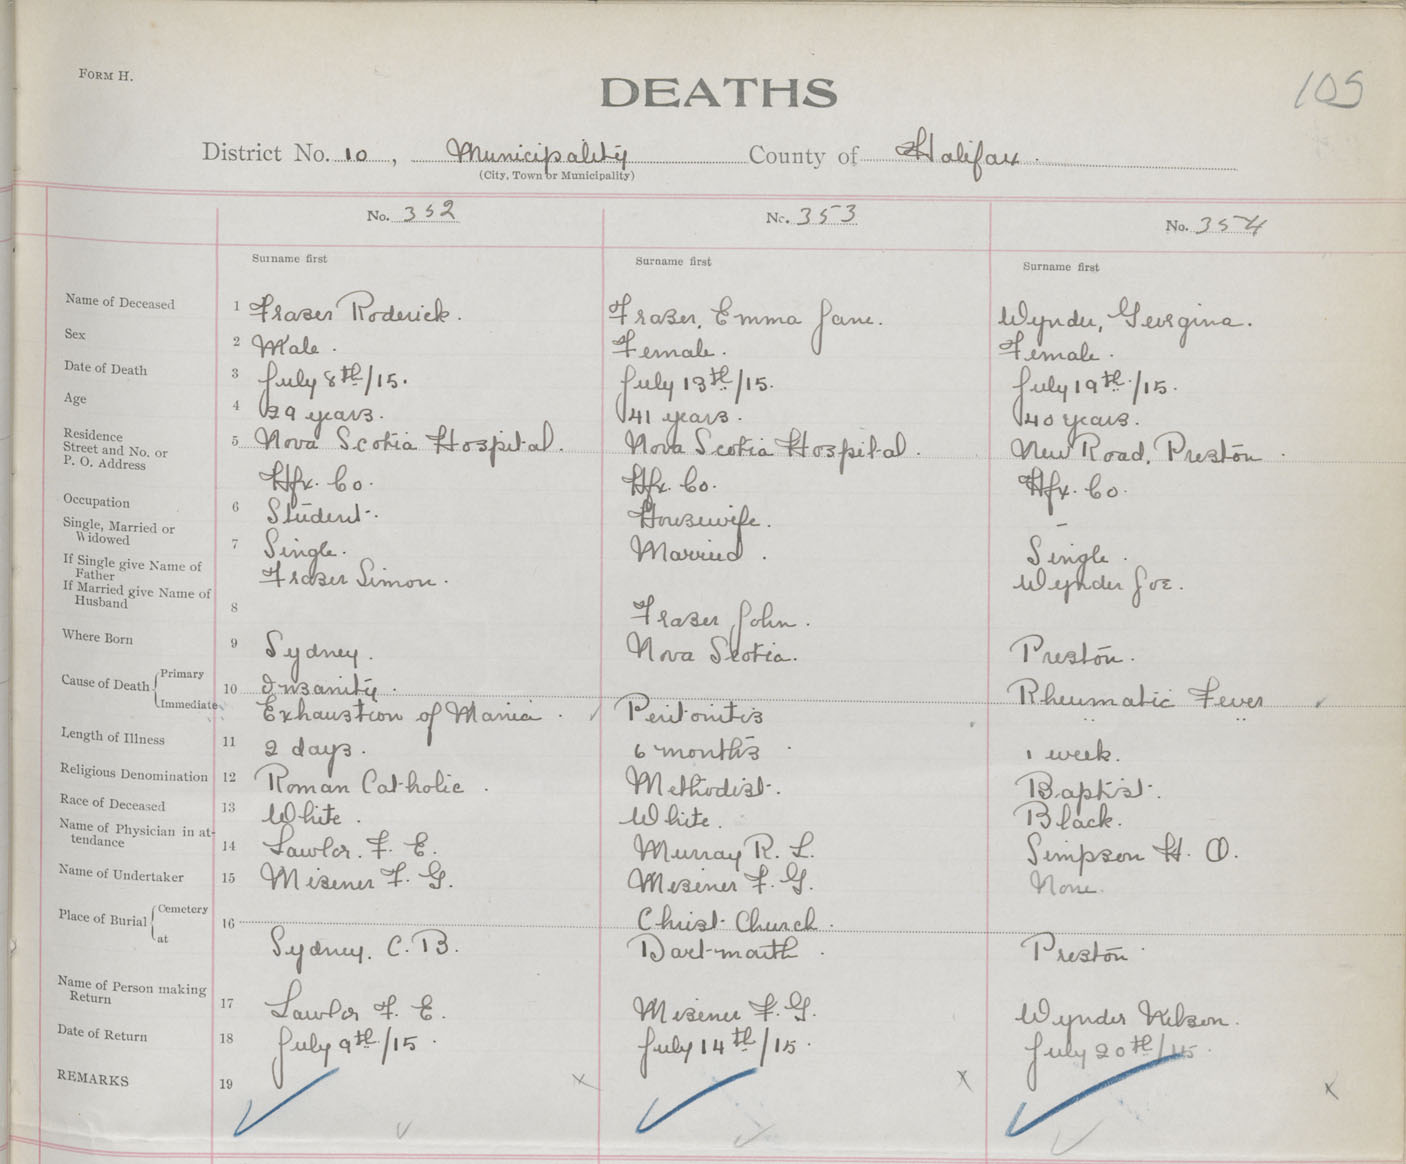 FORM H.
DEATHS
105
District No. 10, Municipality County of Halifax.
(City, Town or Municipality)
No. 352 No. 353 No. 354
Surname first Surname first Surname first
Name of Deceased 1 Fraser Roderick. Fraser, Emma Jane. Wynder, Georgina.
Sex 2 Male. Female. Female.
Date of Death 3 July 8th/15. July 13th/15. July 19th/15.
Age 4 29 years. 41 years. 40 years.
Residence
Street and No. or 5 Nova Scotia Hospital. Nova Scotia Hospital. New Road, Preston.
P. O. Address Hfx. Co. Hfx. Co. Hfx. Co.
Occupation 6 Student. Housewife. –
Single, Married or
Widowed 7 Single. Married. Single.
If Single give Name of
Father Fraser Simon. Wynder Joe.
If Married give Name of
Husband 8 Fraser John.
Where Born 9 Sydney. Nova Scotia. Preston.
Cause of Death Primary 10 Insanity. Rheumatic Fever
Immediate Exhaustion of Mania. Peritonitis " "
Length of Illness 11 2 days. 6 months. 1 week.
Religious Denomination 12 Roman Catholic. Methodist. Baptist.
Race of Deceased 13 White. White. Black.
Name of Physician in at-
tendance 14 Lawlor. F. E. Murray R. L. Simpson H. O.
Name of Undertaker 15 Misener F. G. Misener F. G. None.
Place of Burial Cemetery 16 Christ Church.
at Sydney. C. B. Dartmouth. Preston.
Name of Person making
Return 17 Lawlor F. E. Misener F. G. Wynder Nelson.
Date of Return 18 July 9th/15. July 14th/15. July 20th/15.
REMARKS 19 x x x